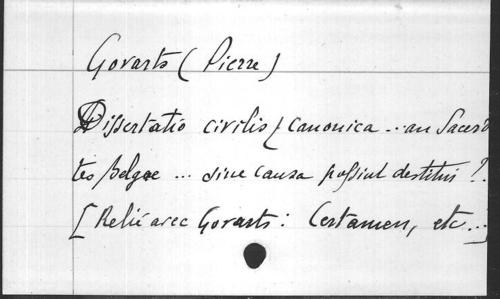 Govarts (Pierre)
Dissertatio civilis & canonica ... an Sacerdo
tes Belgae ... sine causa possint destitui ?.
[Relié avec Govarts: Certamen, etc...]